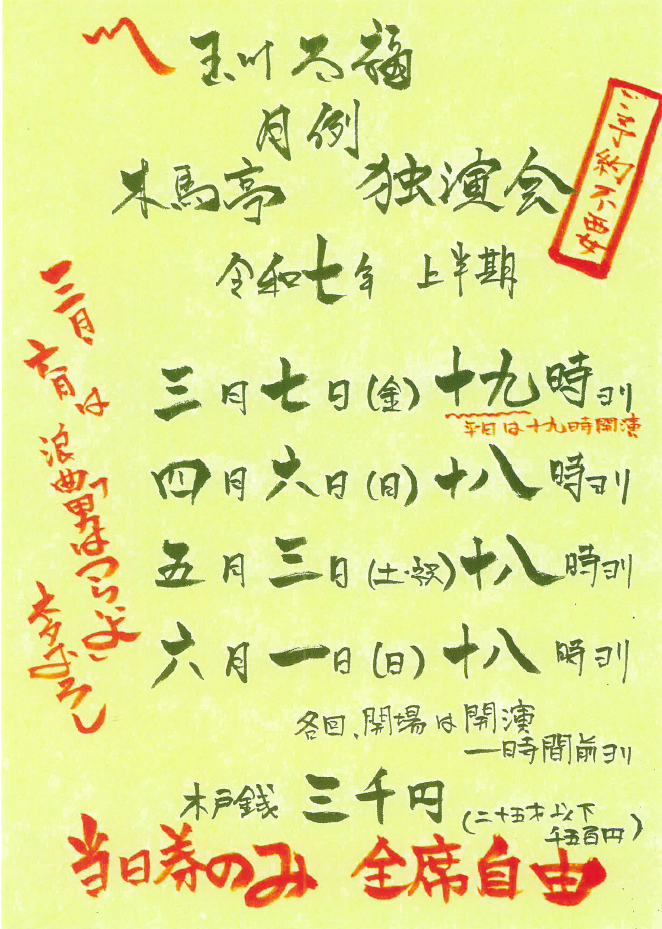 玉川太福
月例
木馬亭 独演会
ご予約不要
令和七年 上半期
三月七日(金)十九時ヨリ
平日は十九時開演
四月六日(日)十八時ヨリ
五月三日(土・祝)十八時ヨリ
六月一日(日)十八時ヨリ
三月、六月は
浪曲「男はつらいよ」
ネタおろし
各回、開場は開演
一時間前ヨリ
木戸銭 三千円
(二十五才以下
千五百円)
当日券のみ 全席自由